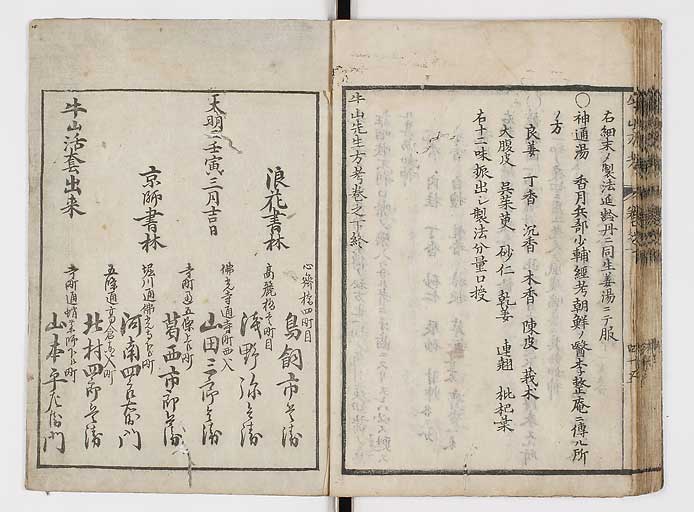 右細末ノ製法延齢丹ニ同生姜湯ニテ服
〇神通湯 香月兵部少輔經考朝鮮ノ醫李整庵ニ傳ル所
ノ方
良姜 丁香 沉香 木香 陳皮 莪朮
大腹皮 呉茱萸 砂仁 乾姜 連翹 枇杷葉
右十二味振出シ製法分量口授
牛山先生方考巻之下終
天明二壬寅三月吉日
浪花書林
心斎橋四町目
鳥飼市兵衛
高麗橋壱町目
浅野弥兵衛
京師書林
佛光寺通寺町西入
山田三郎兵衛
寺町通五条上ル町
葛西市郎兵衛
堀川通佛光寺下ル町
河南四郎右衛門
五條通高倉東入町
北村四郎兵衛
寺町通蛸薬師下ル町
山本平左衛門
牛山活套出来